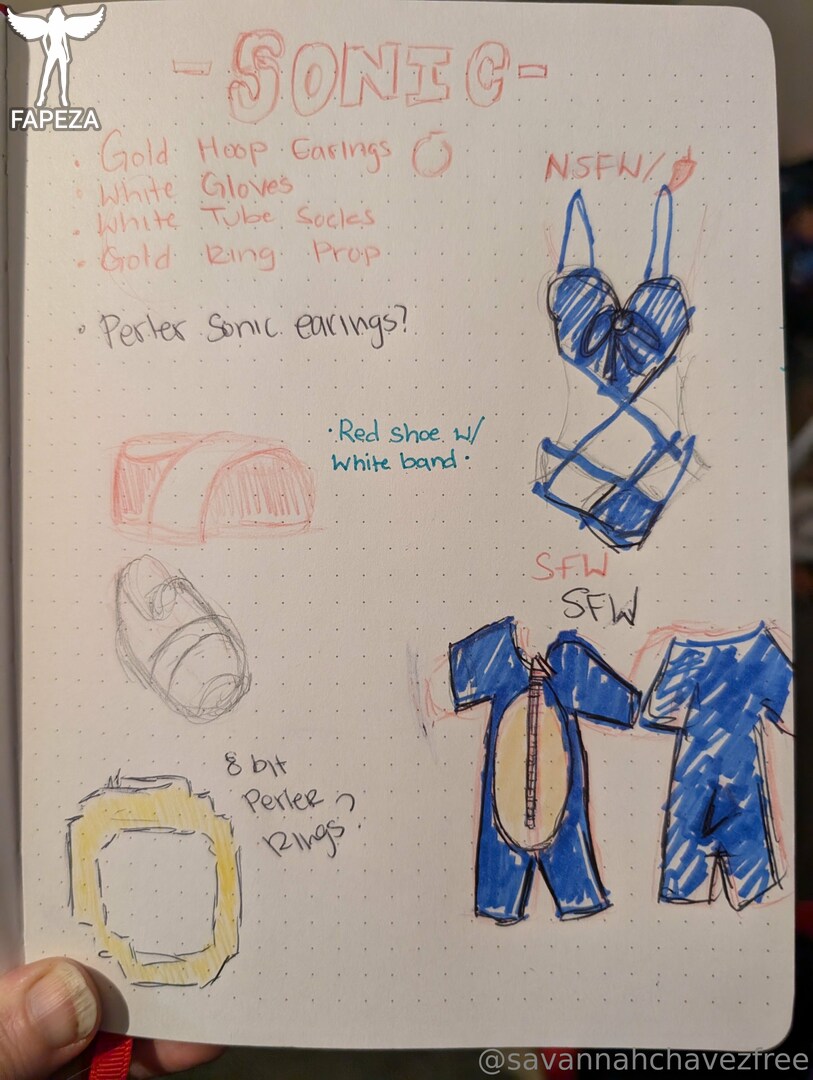 FAPEZA
- SONIC -
• Gold Hoop Earings
• White Gloves
• White Tube Socks
• Gold Ring Prop
• Perler Sonic earings?
NSFW/
• Red shoe w/
white band •
SFW
SFW
8 bit
Perler
Rings?
@savannahchavezfree